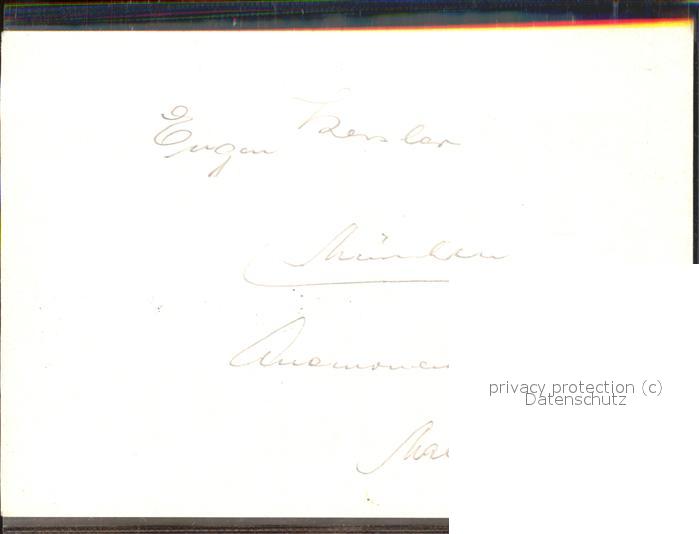 Eugen Kessler
München
Anemonen
privacy protection (c)
Datenschutz